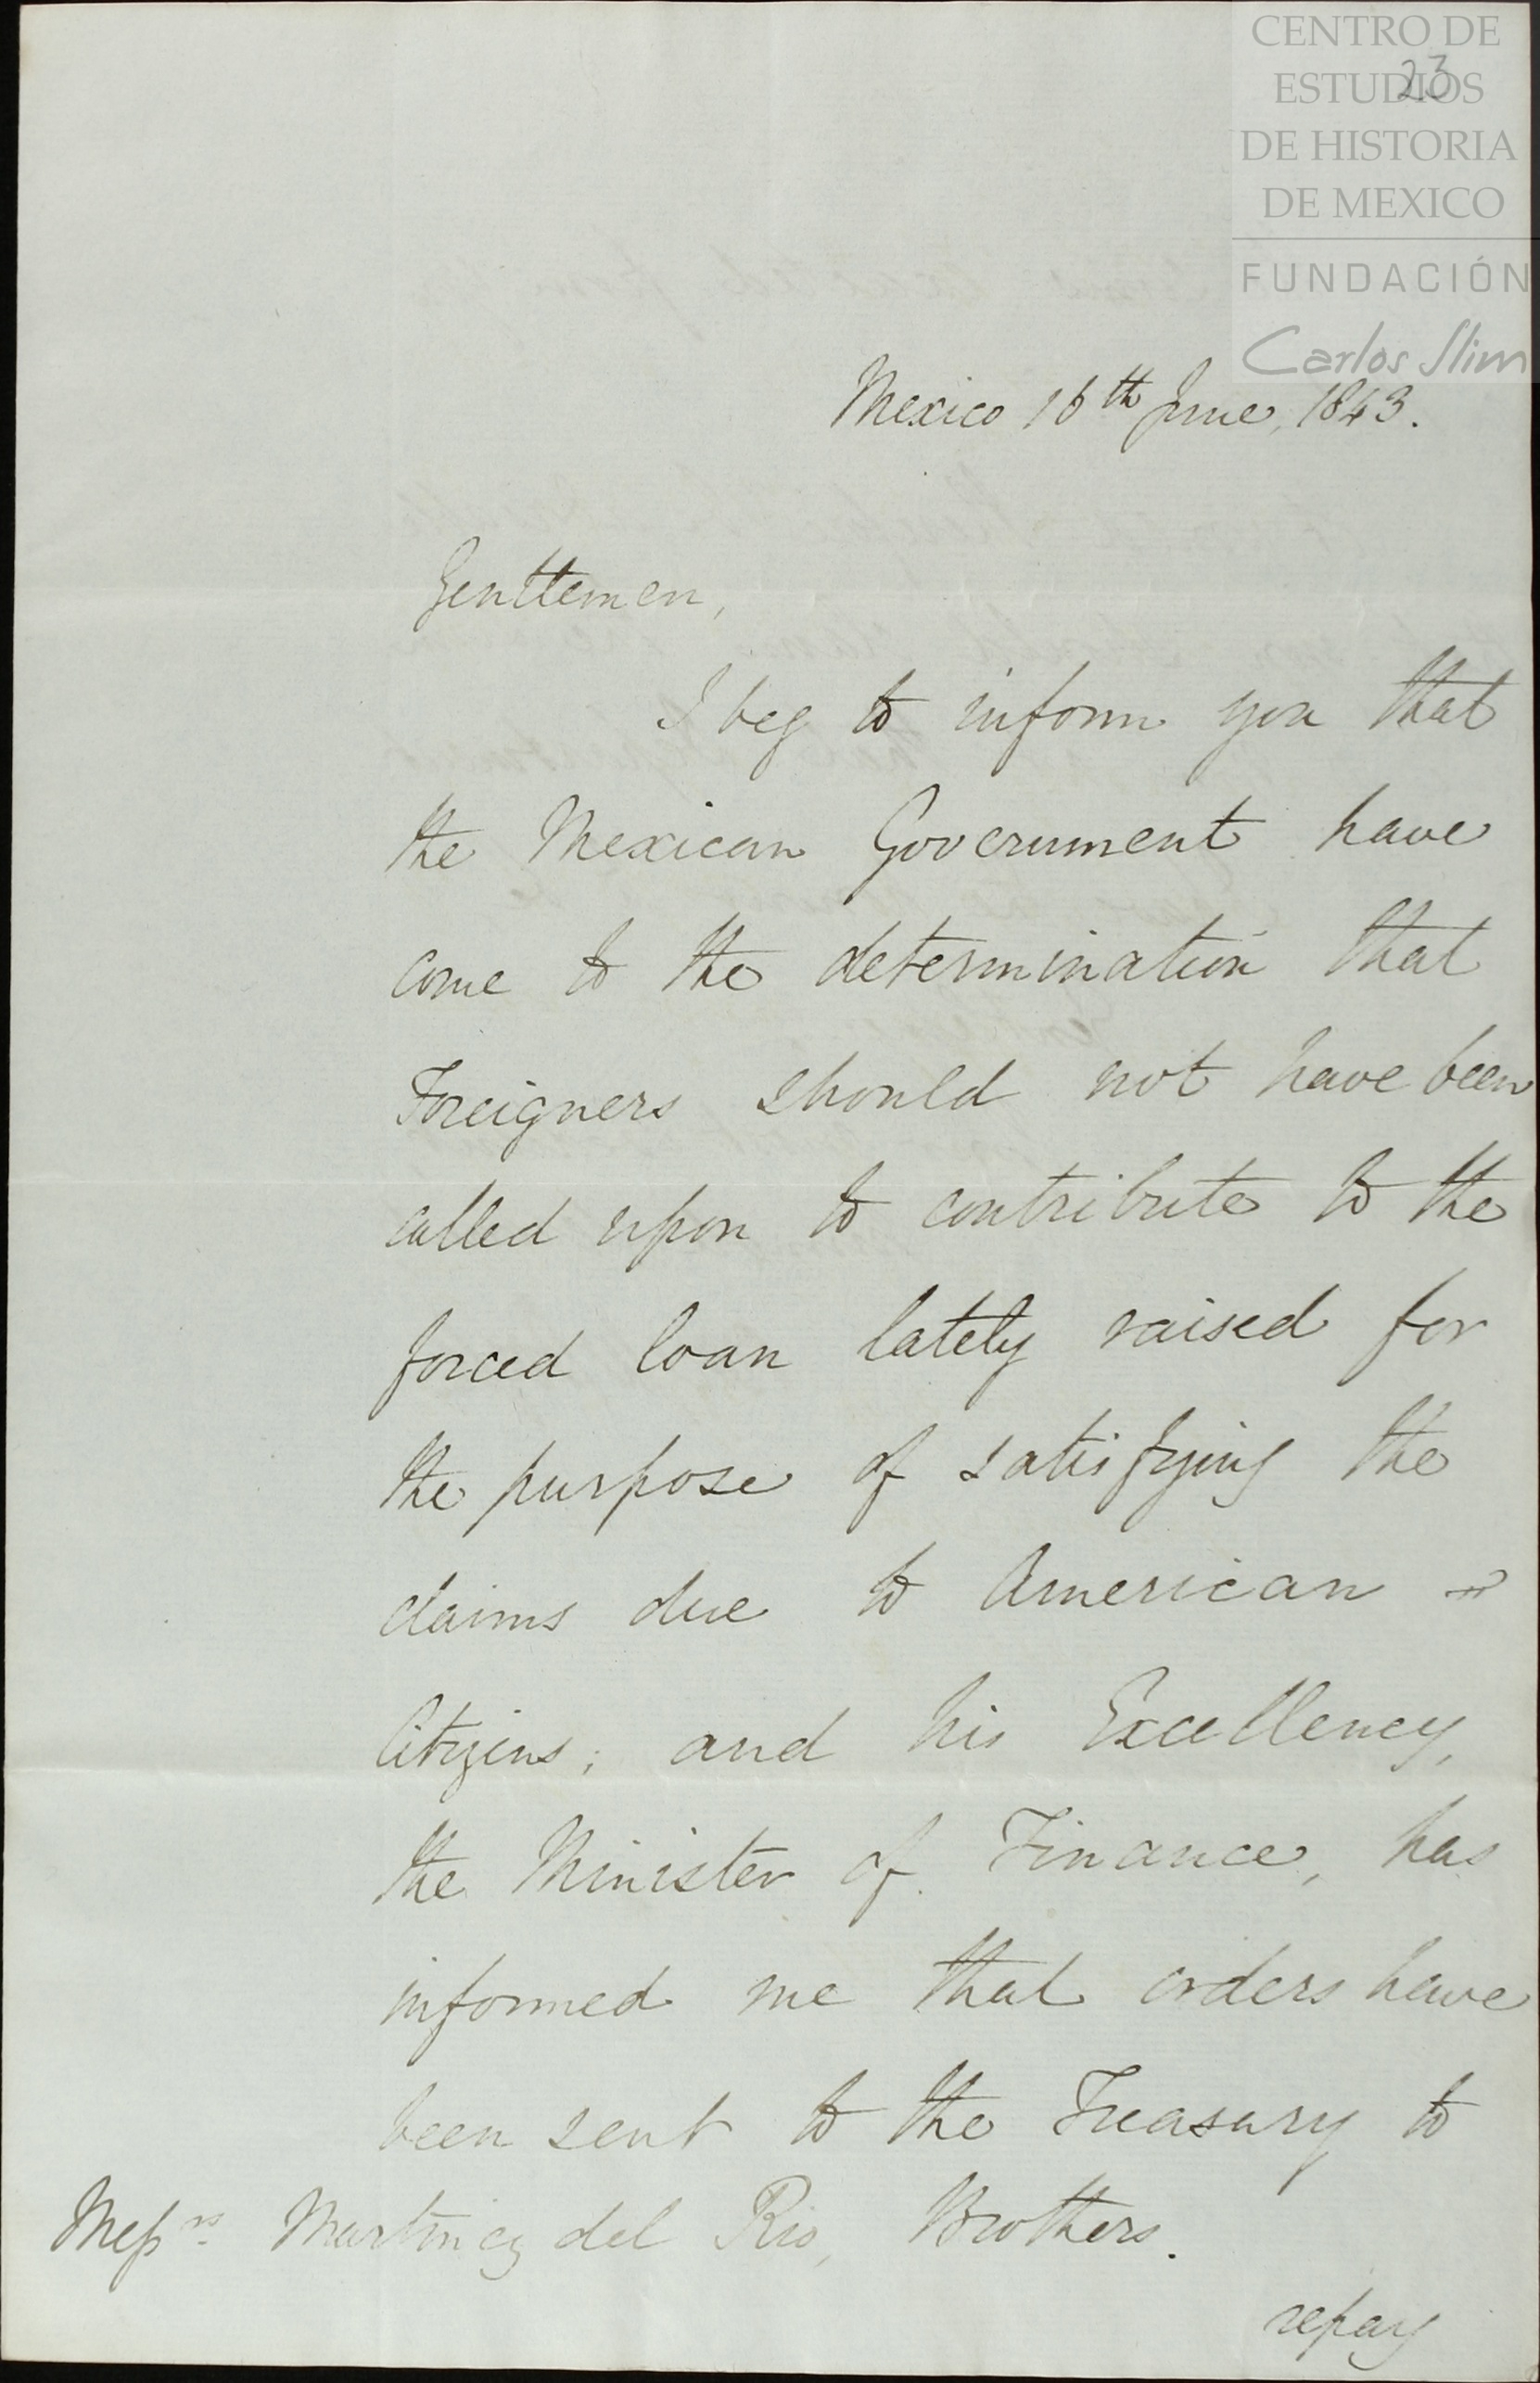 CENTRO DE
ESTUDIOS
DE HISTORIA
DE MEXICO
FUNDACIÓN
Carlos Slim
23
Mexico 16th June, 1843.
Gentlemen,
I beg to inform you that
the Mexican Government have
come to the determination that
Foreigners should not have been
called upon to contribute to the
forced loan lately raised for
the purpose of satisfying the
claims due to American
Citizens; and his Excellency,
the Minister of Finance, has
informed me that orders have
been sent to the Treasury to
Messrs. Martinez del Rio, Brothers.
repay